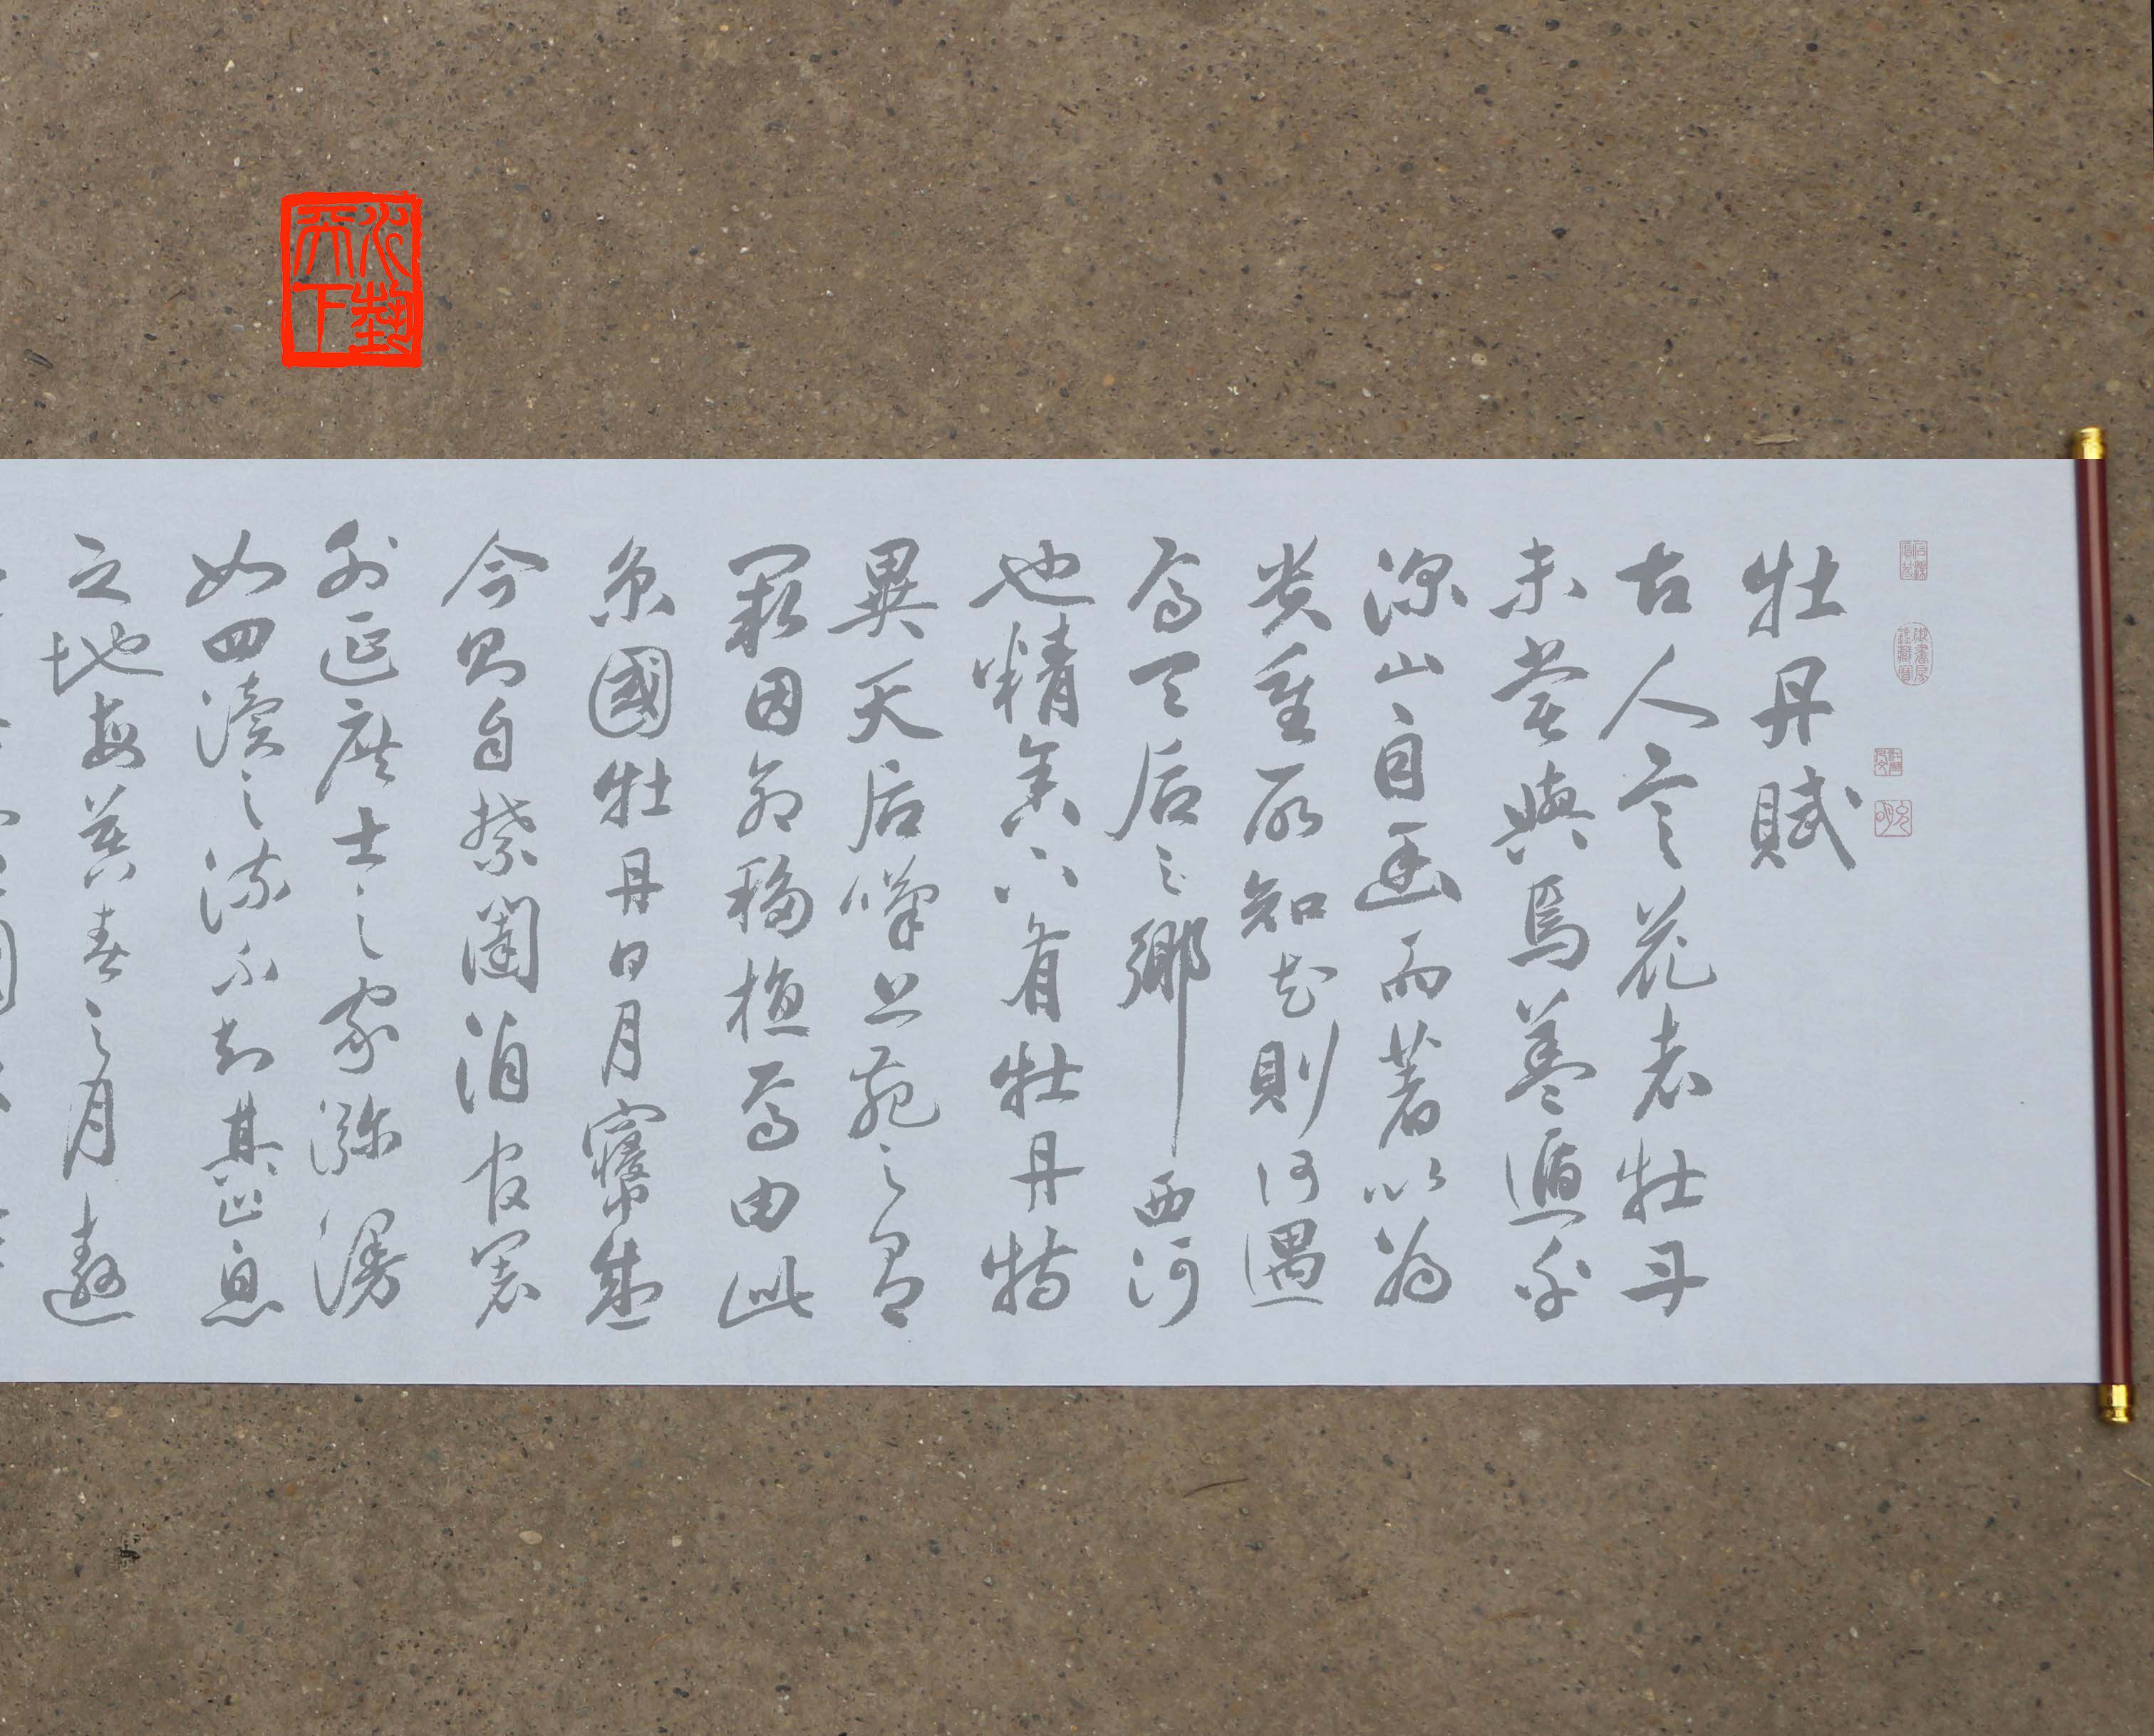 牡丹賦
古人言花者牡丹
未嘗與焉蓋遁乎
深山自幽而著以為
貴重所知花則何遇
焉天后之鄉西河
也精舍下有牡丹特
異天后嘆上苑之有
闕因命移植焉由此
京國牡丹日月寖盛
今則自禁闥洎官署
外延庶士之家瀰漫
如四瀆之流不知其止息
之地每暮春之月遨